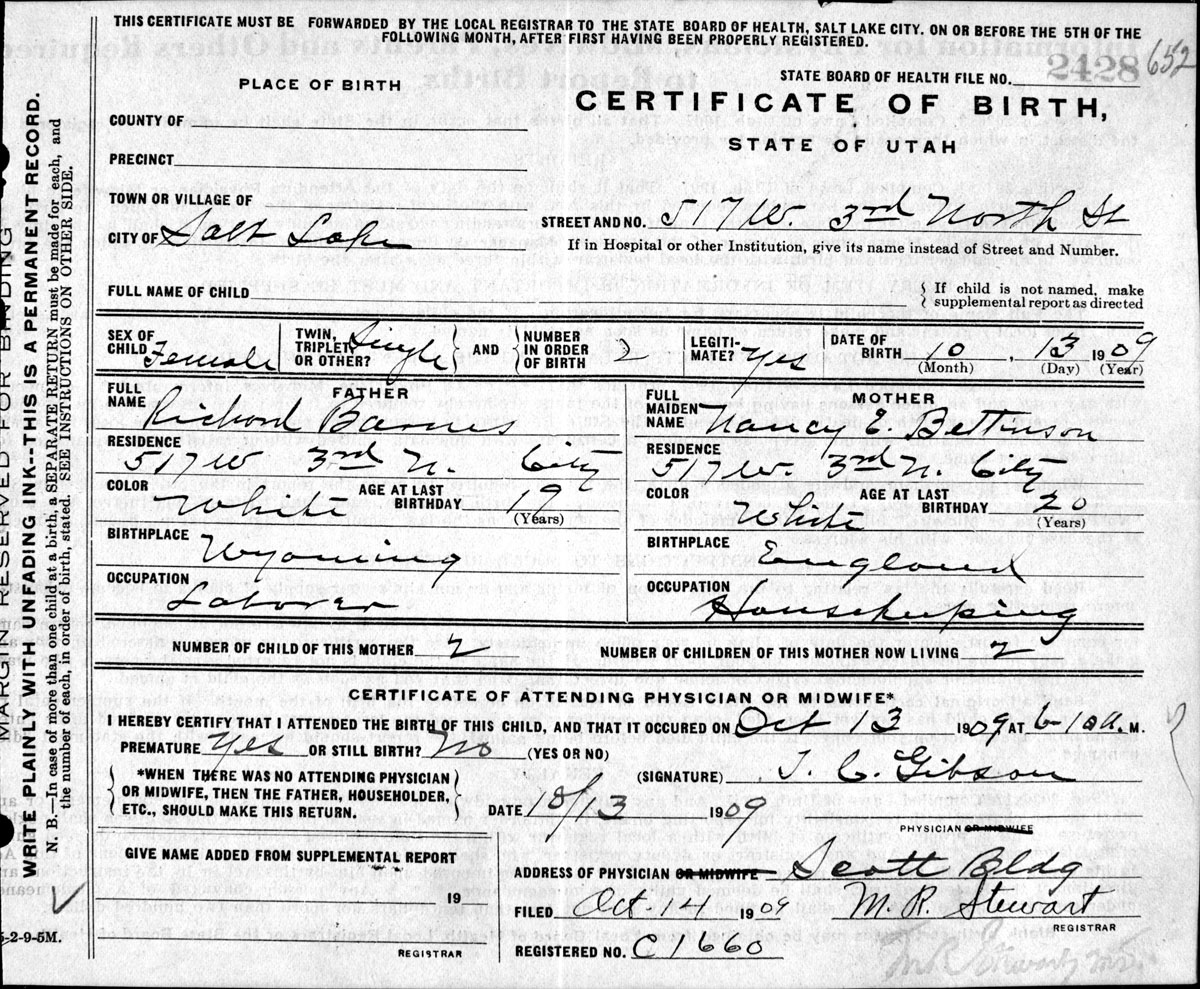 THIS CERTIFICATE MUST BE FORWARDED BY THE LOCAL REGISTRAR TO THE STATE BOARD OF HEALTH, SALT LAKE CITY. ON OR BEFORE THE 5TH OF THE
FOLLOWING MONTH, AFTER FIRST HAVING BEEN PROPERLY REGISTERED.
652
STATE BOARD OF HEALTH FILE NO. 2428
PLACE OF BIRTH
CERTIFICATE OF BIRTH,
STATE OF UTAH
COUNTY OF
PRECINCT
TOWN OR VILLAGE OF
STREET AND NO. 517 W. 3rd North St
CITY OF Salt Lake
If in Hospital or other Institution, give its name instead of Street and Number.
FULL NAME OF CHILD
If child is not named, make
supplemental report as directed
SEX OF CHILD Female
TWIN, TRIPLET, OR OTHER? Single
AND
NUMBER IN ORDER OF BIRTH 2
LEGITI-
MATE? yes
DATE OF BIRTH 10, 13 1909
(Month) (Day) (Year)
FATHER
FULL NAME Richard Barnes
RESIDENCE
517 W 3rd N. City
COLOR White
AGE AT LAST BIRTHDAY 19
(Years)
BIRTHPLACE Wyoming
OCCUPATION
Laborer
MOTHER
FULL MAIDEN NAME Nancy E. Bettinson
RESIDENCE
517 W. 3rd N. City
COLOR White
AGE AT LAST BIRTHDAY 20
(Years)
BIRTHPLACE England
OCCUPATION Housekeeping
NUMBER OF CHILD OF THIS MOTHER 2
NUMBER OF CHILDREN OF THIS MOTHER NOW LIVING 2
CERTIFICATE OF ATTENDING PHYSICIAN OR MIDWIFE*
I HEREBY CERTIFY THAT I ATTENDED THE BIRTH OF THIS CHILD, AND THAT IT OCCURED ON Oct 13 1909 AT 6-10 a. M.
PREMATURE Yes OR STILL BIRTH? No (YES OR NO)
*WHEN THERE WAS NO ATTENDING PHYSICIAN
OR MIDWIFE, THEN THE FATHER, HOUSEHOLDER,
ETC., SHOULD MAKE THIS RETURN.
(SIGNATURE) J. C. Gibson
DATE 1909
PHYSICIAN OR MIDWIFE
GIVE NAME ADDED FROM SUPPLEMENTAL REPORT
19
REGISTRAR
ADDRESS OF PHYSICIAN OR MIDWIFE Scott Bldg
FILED Oct 14 1909 M. R. Stewart
REGISTRAR
REGISTERED NO. C1660
MARGIN RESERVED FOR BINDING
WRITE PLAINLY WITH UNFADING INK--THIS IS A PERMANENT RECORD.
N. B.—In case of more than one child at a birth, a SEPARATE RETURN must be made for each, and
the number of each, in order of birth, stated. SEE INSTRUCTIONS ON OTHER SIDE.
5-2-9-5M.